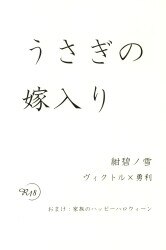 うさぎの
嫁入り
紺碧ノ雪
ヴィクトル×勇利
R18
おまけ：家族のハッピーハロウィーン